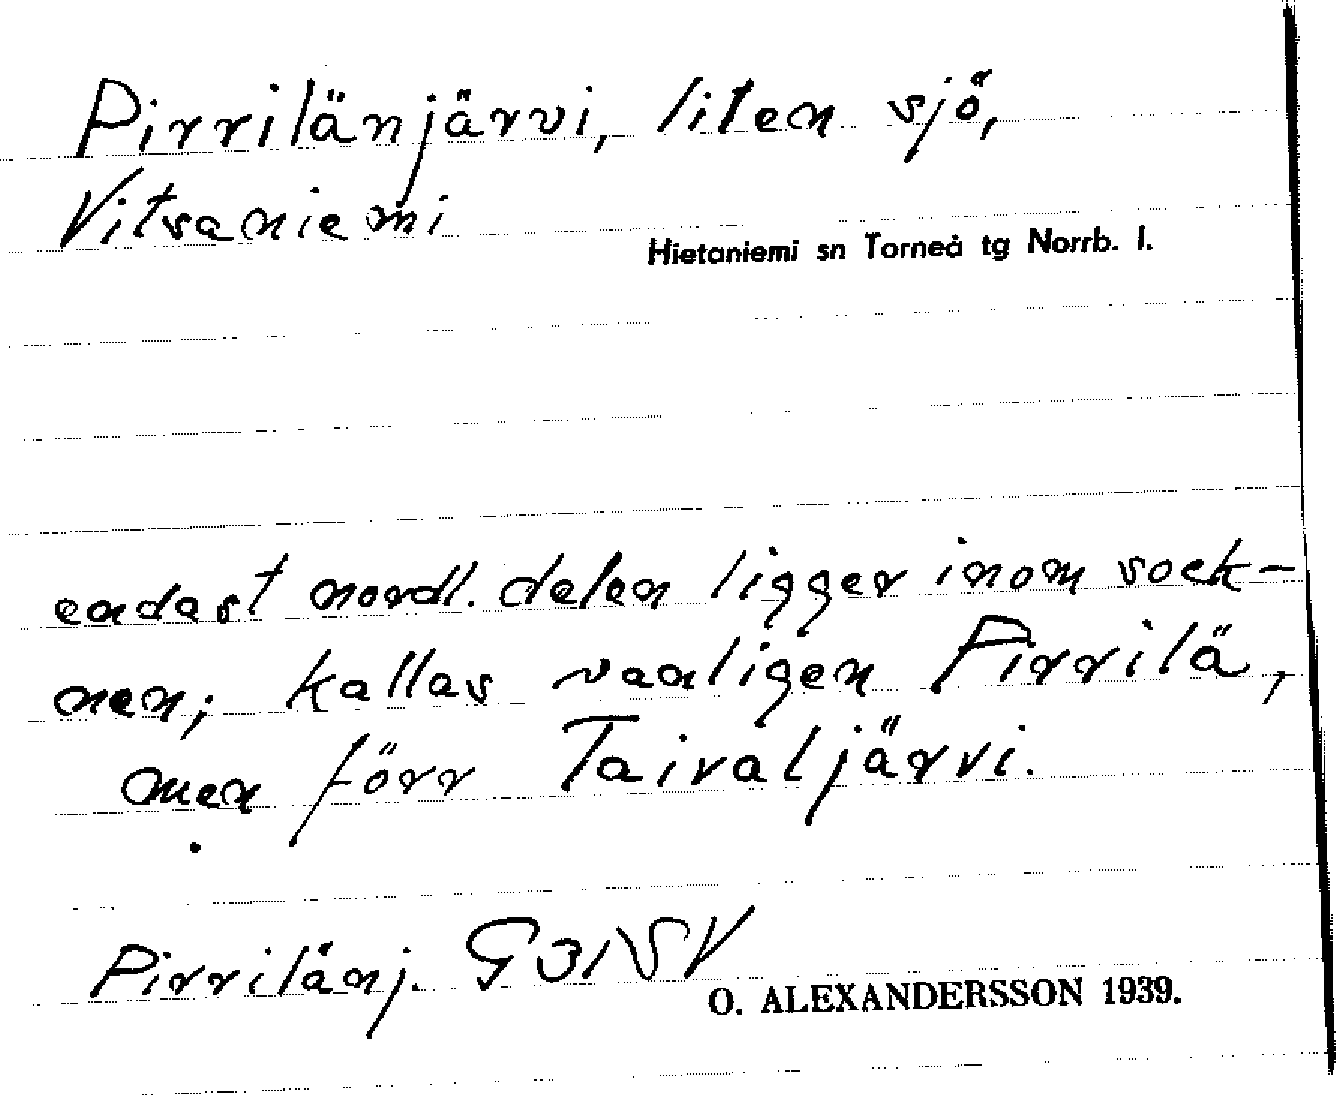 Pirrilänjärvi, liten sjö,
Vitsaniemi
Hietaniemi sn Torneå tg Norrb. l.
endast nordl. delen ligger inom sock-
nen; kallas vanligen Pirrilä,
men förr Taivaljärvi.
Pirrilänj. G31SV
O. ALEXANDERSSON 1939.